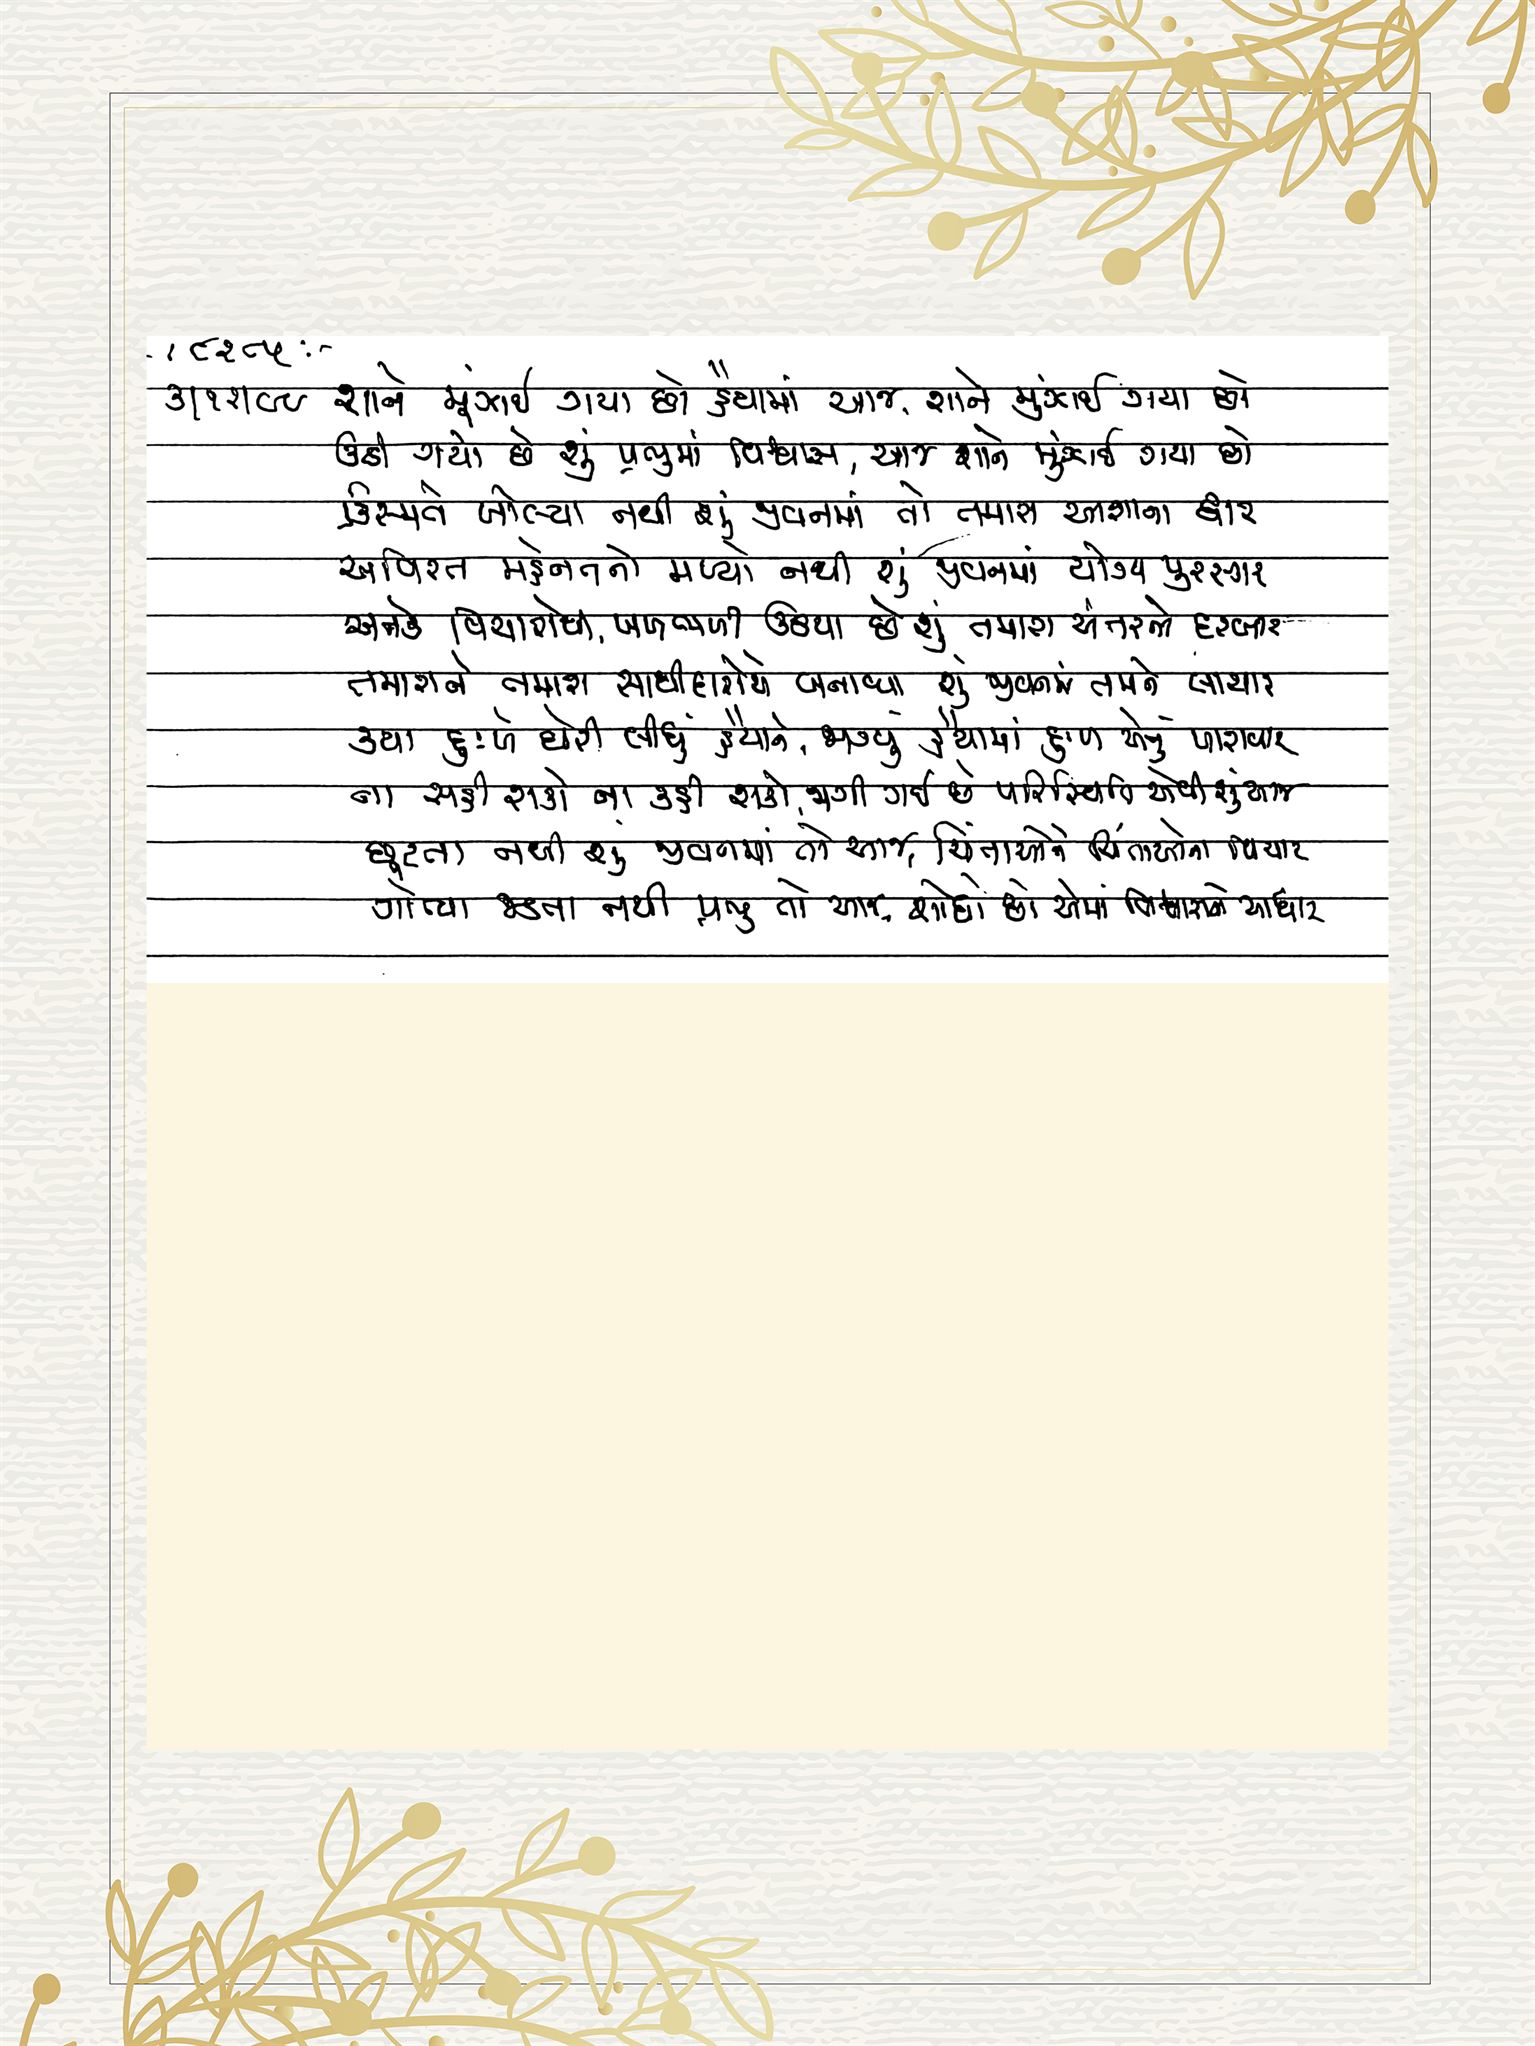 શાને મૂંઝાઈ ગયા છો હૈયામાં આજ, શાને મુંઝાઈ ગયા છો
ઉઠી ગયો છે શું પ્રભુમાં વિશ્વાસ, આજ શાને મુંઝાઈ ગયા છો
કિસ્મતે ખોલ્યા નથી શું જીવનમાં તો તમારા આશાના દ્વાર
અવિરત મહેનતનો મળ્યો નથી શું જીવનમાં યોગ્ય પુરસ્કાર
અનેક વિચારોથી, ખળભળી ઉઠયા છે શું તમારા અંતરનો દરબાર
તમારાને તમારા સાથીદારોએ બનાવ્યા શું જીવનમાં તમને લાચાર
કયા દુઃખે ઘેરી લીધું હૈયાને, જાગ્યું હૈયામાં દુઃખ એનું પારાવાર
ના સહી શકો ના કહી શકો, જાગી ગઈ છે પરિસ્થિતિ એવી શું આજ
છૂટતા નથી શું જીવનમાં તો આજ, ચિંતાઓને ચિંતાઓના વિચાર
ગોત્યા જડતા નથી પ્રભુ તો આજ, શોધો છો એમાં વિશ્વાસને આધાર